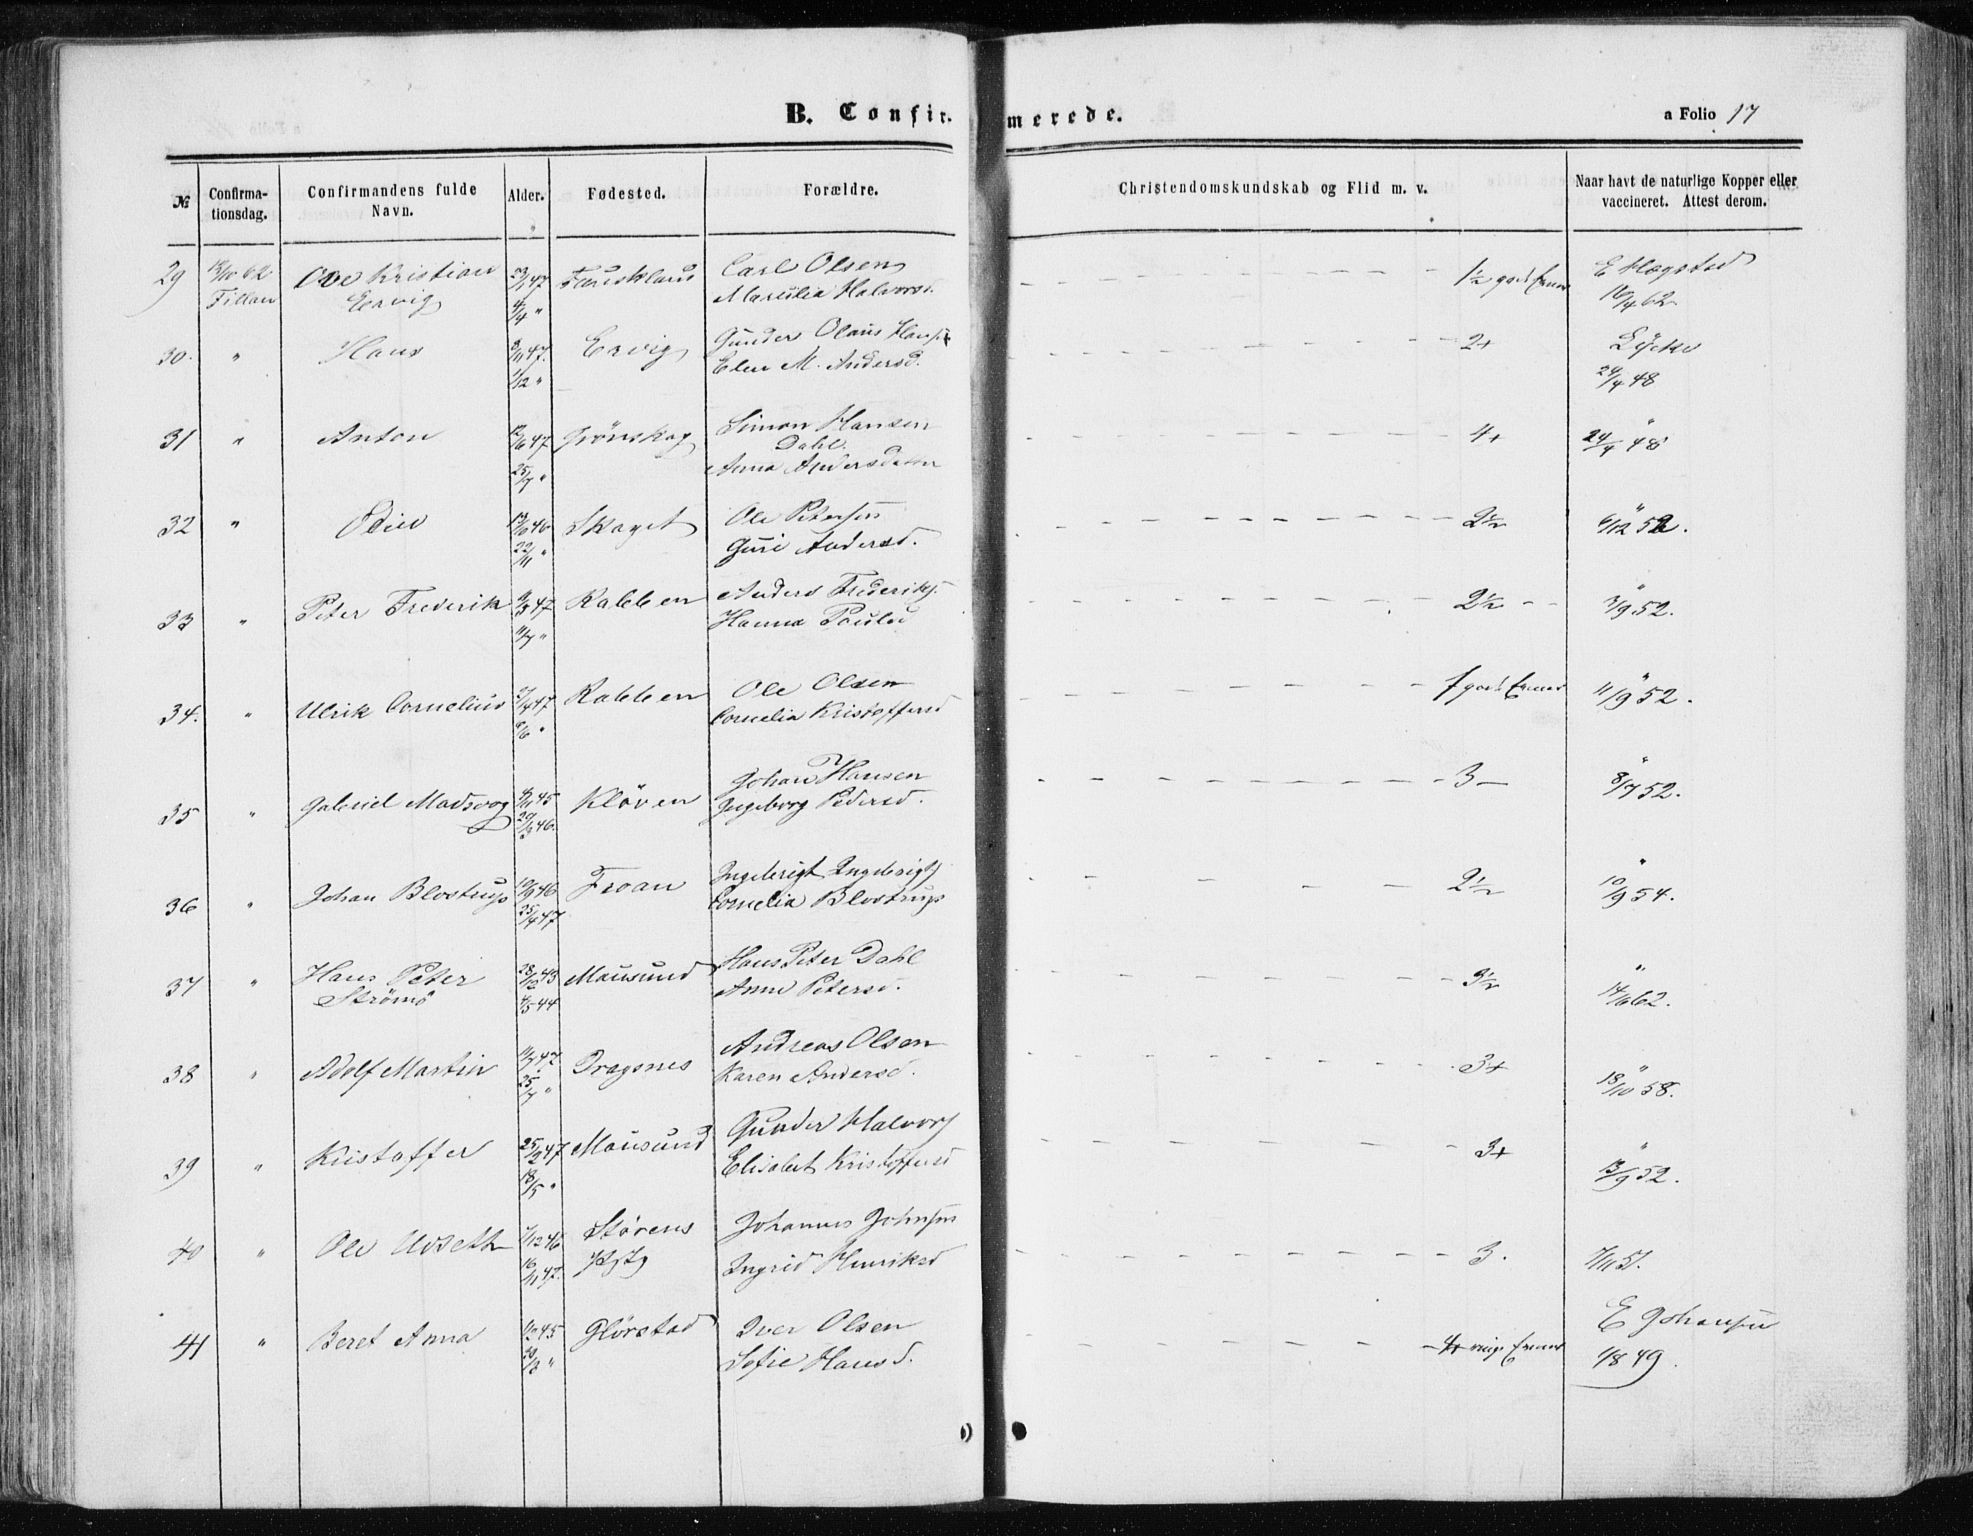 B. Confir-merede.
a Folio 17
№ Confirma-tionsdag. Confirmandens fulde Navn. Alder. Fødested. Forældre. Christendomskundskab og Flid m. v. Naar havt de naturlige Kopper eller vaccineret. Attest derom.
29 Ole Kristian 47 Carl Olsen 1½ god E Hegstad
Fillan Ervig 4/4 " Halvorsd. 16/4 62.
30. " Hans 47. Ervig Gunder Olaus Hans 2+
1/12 " Elen M. Andersd. 24/4 48
31 " Anton 12/6 47 Grönskag Simon Hansen 4+ "
Dahl. 24/4 48
25/7 " Anna Andersdatter
32 " 13/10 46 Skaget Ole Petersen 2½ "
22/11 " Guri Andersd. 6/12 52.
33 " Peter Frederik 47 Rabben Anders Frederiks. 2½ - - "
11/7 " Hanna Pauls 3/9 52.
34. " Ulrik Cornelius 47 Rabben Ole Olsen 1 god "
" Cornelia Kristoffersd 11/9 52.
35 " Gabriel Madsvog 45 Kløven Johan Hansen 3 - "
46. Ingeborg Pedersd. 8/7 52.
36 " Johan Blostrup 46 Froan Ingebrigt Ingebrigts 2½ "
25/4 47 Cornelia Blostrup 10/9 54.
37 " Hans Peter 28/12 43 Mausund Hans Peter Dahl 3½ "
Strömö 4/5 44 Anne Petersd. 14/6 62.
38 " Adolf Martin 47. Dragsnes Andreas Olsen 3+ "
25/7 " Karen Andersd. 13/10 58.
39 " Kristoffer 25/2 47 Mausund Gunder Halvors 3+ "
18/5 " Elisabet Kristoffersd 13/9 52.
40 " Ole Udseth 1/12 46 Størens Johannes Johnsen 3.
16/1 47. Pgjg Ingrid Henriksd 7/11 51.
41 " Beret Anna 45 Glörstad Iver Olsen 4+ E Johansen
" Sofie Hansd. 1/8 49.